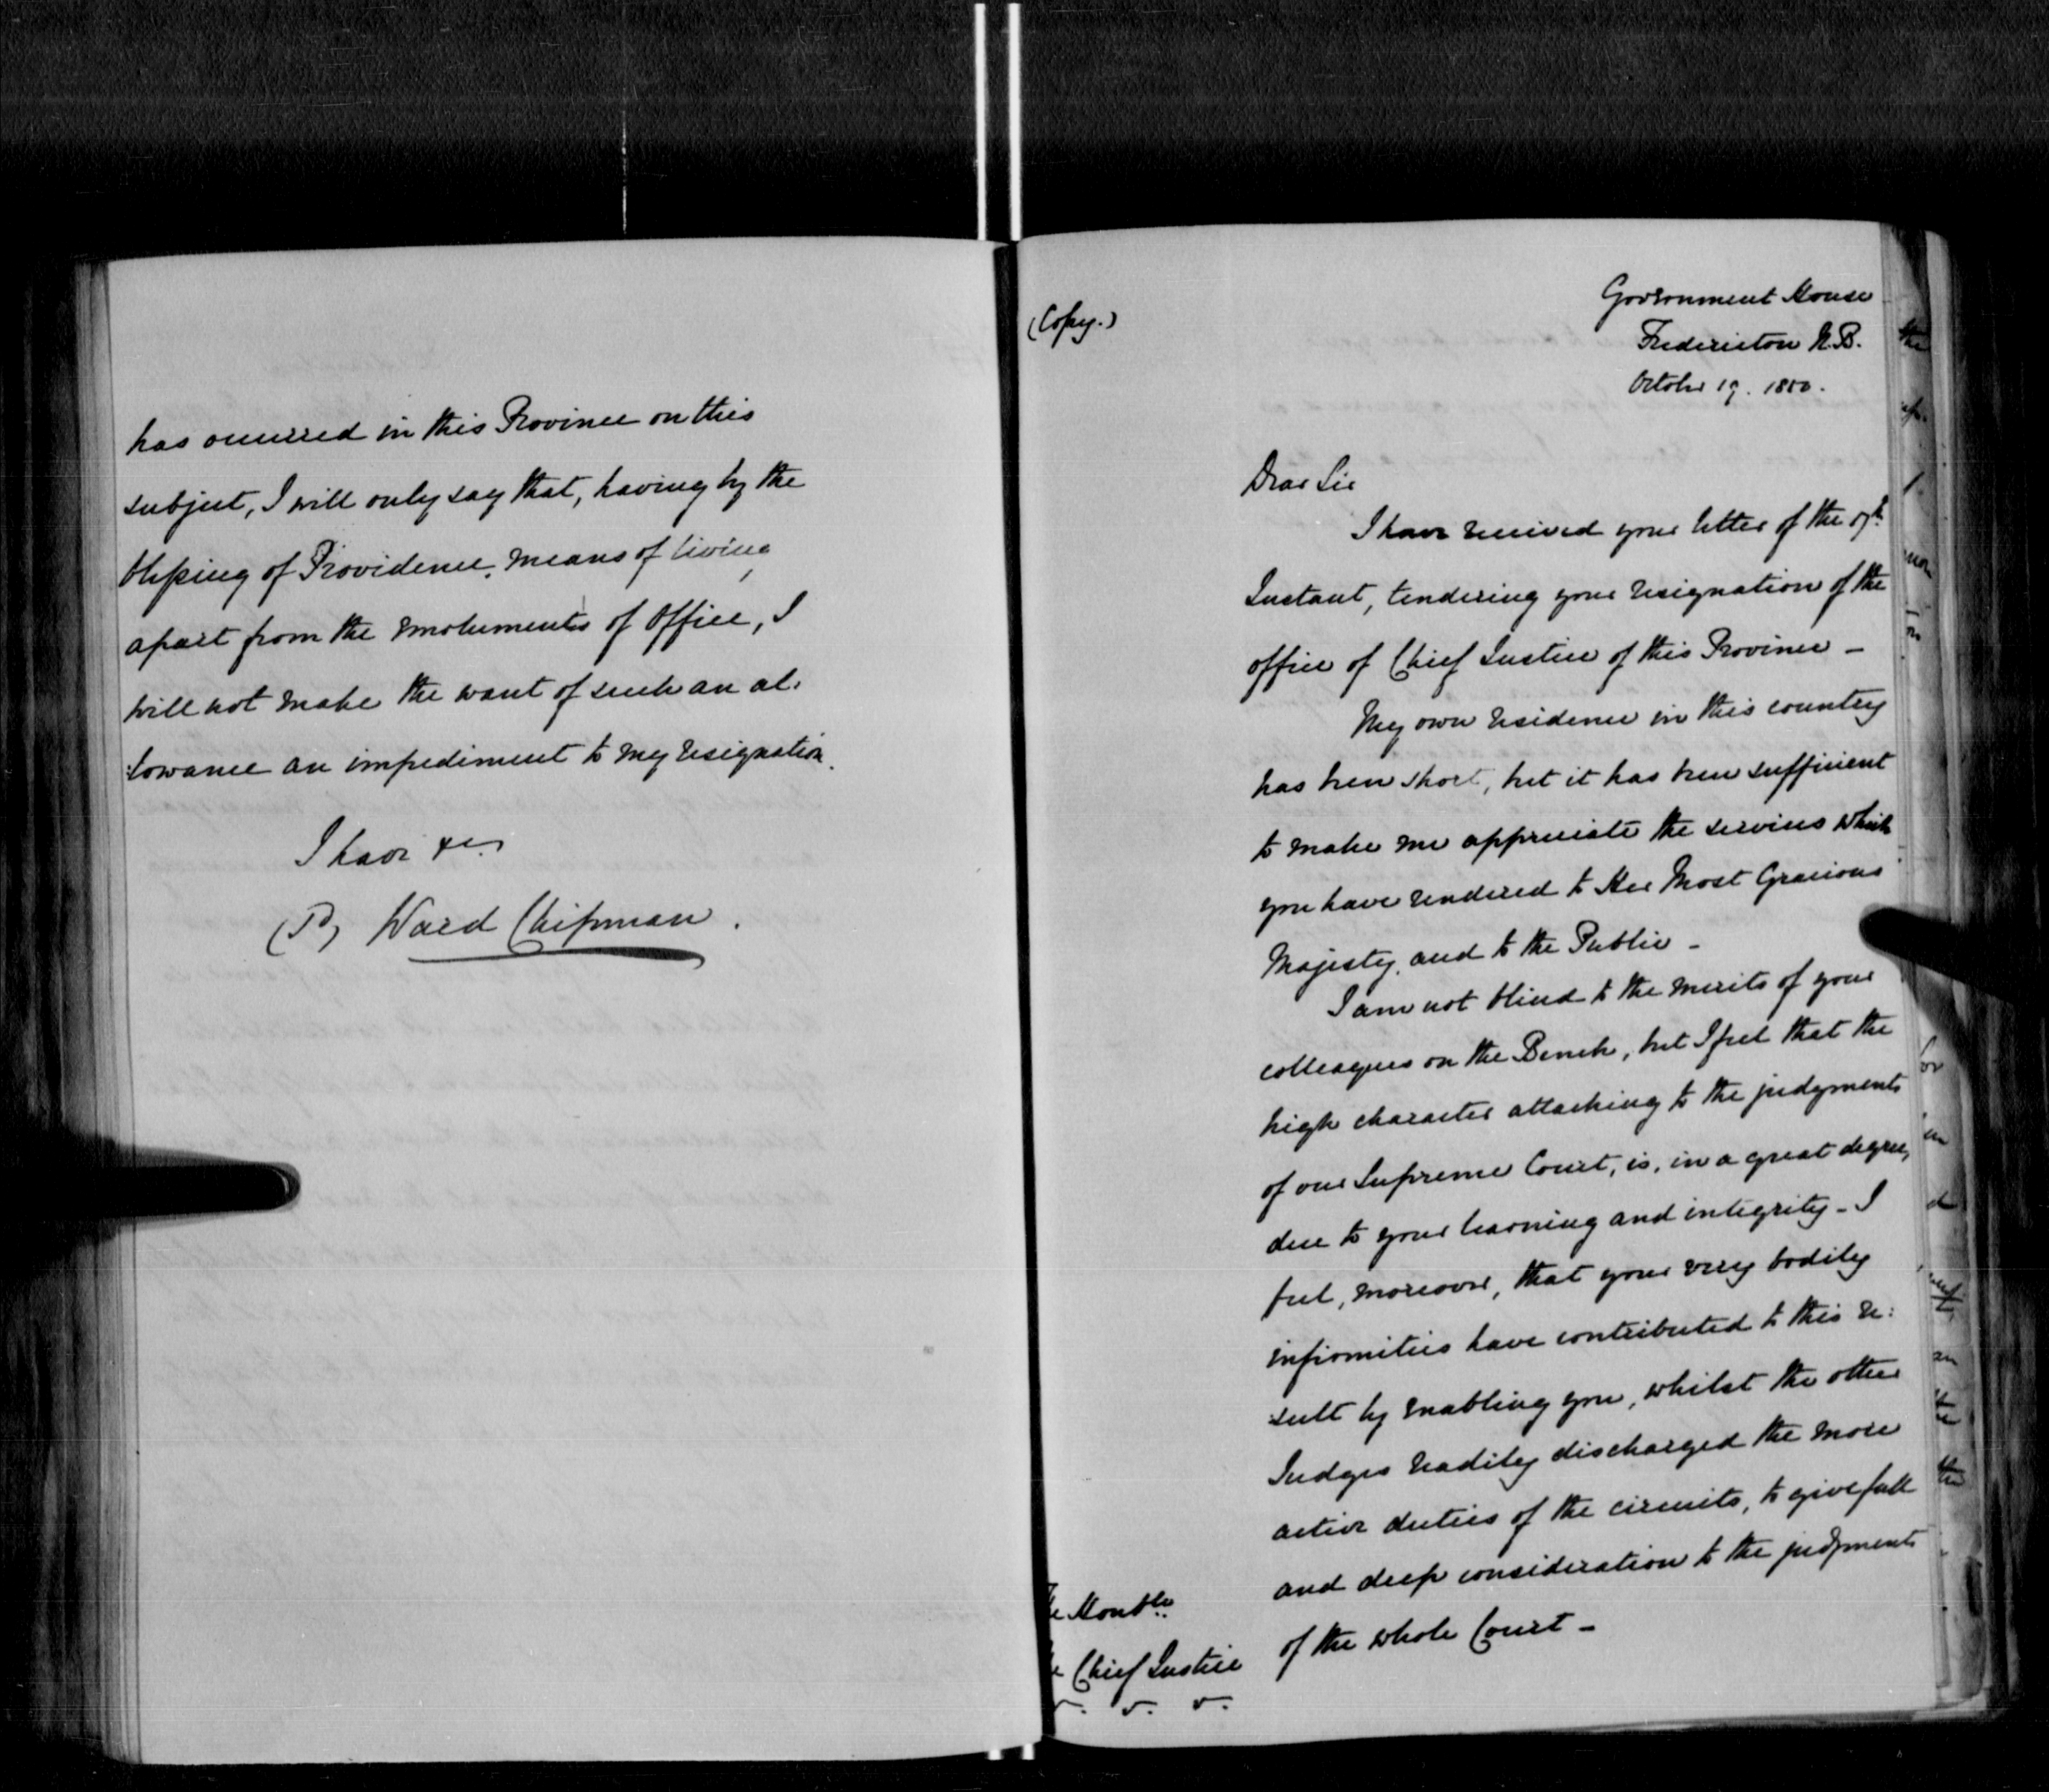 has occurred in this Province on this
subject, I will only say that, having by the
blessing of Providence, means of living
apart from the emoluments of Office, I
will not make the want of such an al:
:lowance an impediment to my resignation.
I have &c
(Sd) Ward Chipman.
(Copy.)
Government House
Fredericton N.B.
October 19. 1850.
Dear Sir
I have received your letter of the
Instant, tendering your resignation of the
office of Chief Justice of this Province –
My own residence in this country
has been short, but it has been sufficient
to make me appreciate the services which
you have rendered to Her Most Gracious
Majesty, and to the Public –
I am not blind to the merits of your
colleagues on the Bench, but I feel that the
high character attaching to the judgments
of our Supreme Court, is, in a great degree,
due to your learning and integrity – I
feel, moreover, that your very bodily
infirmities have contributed to this re:
:sult by enabling you, whilst the other
Judges readily discharged the more
active duties of the circuits, to give full
and deep consideration to the judgments
of the whole Court –
Honble
Chief Justice